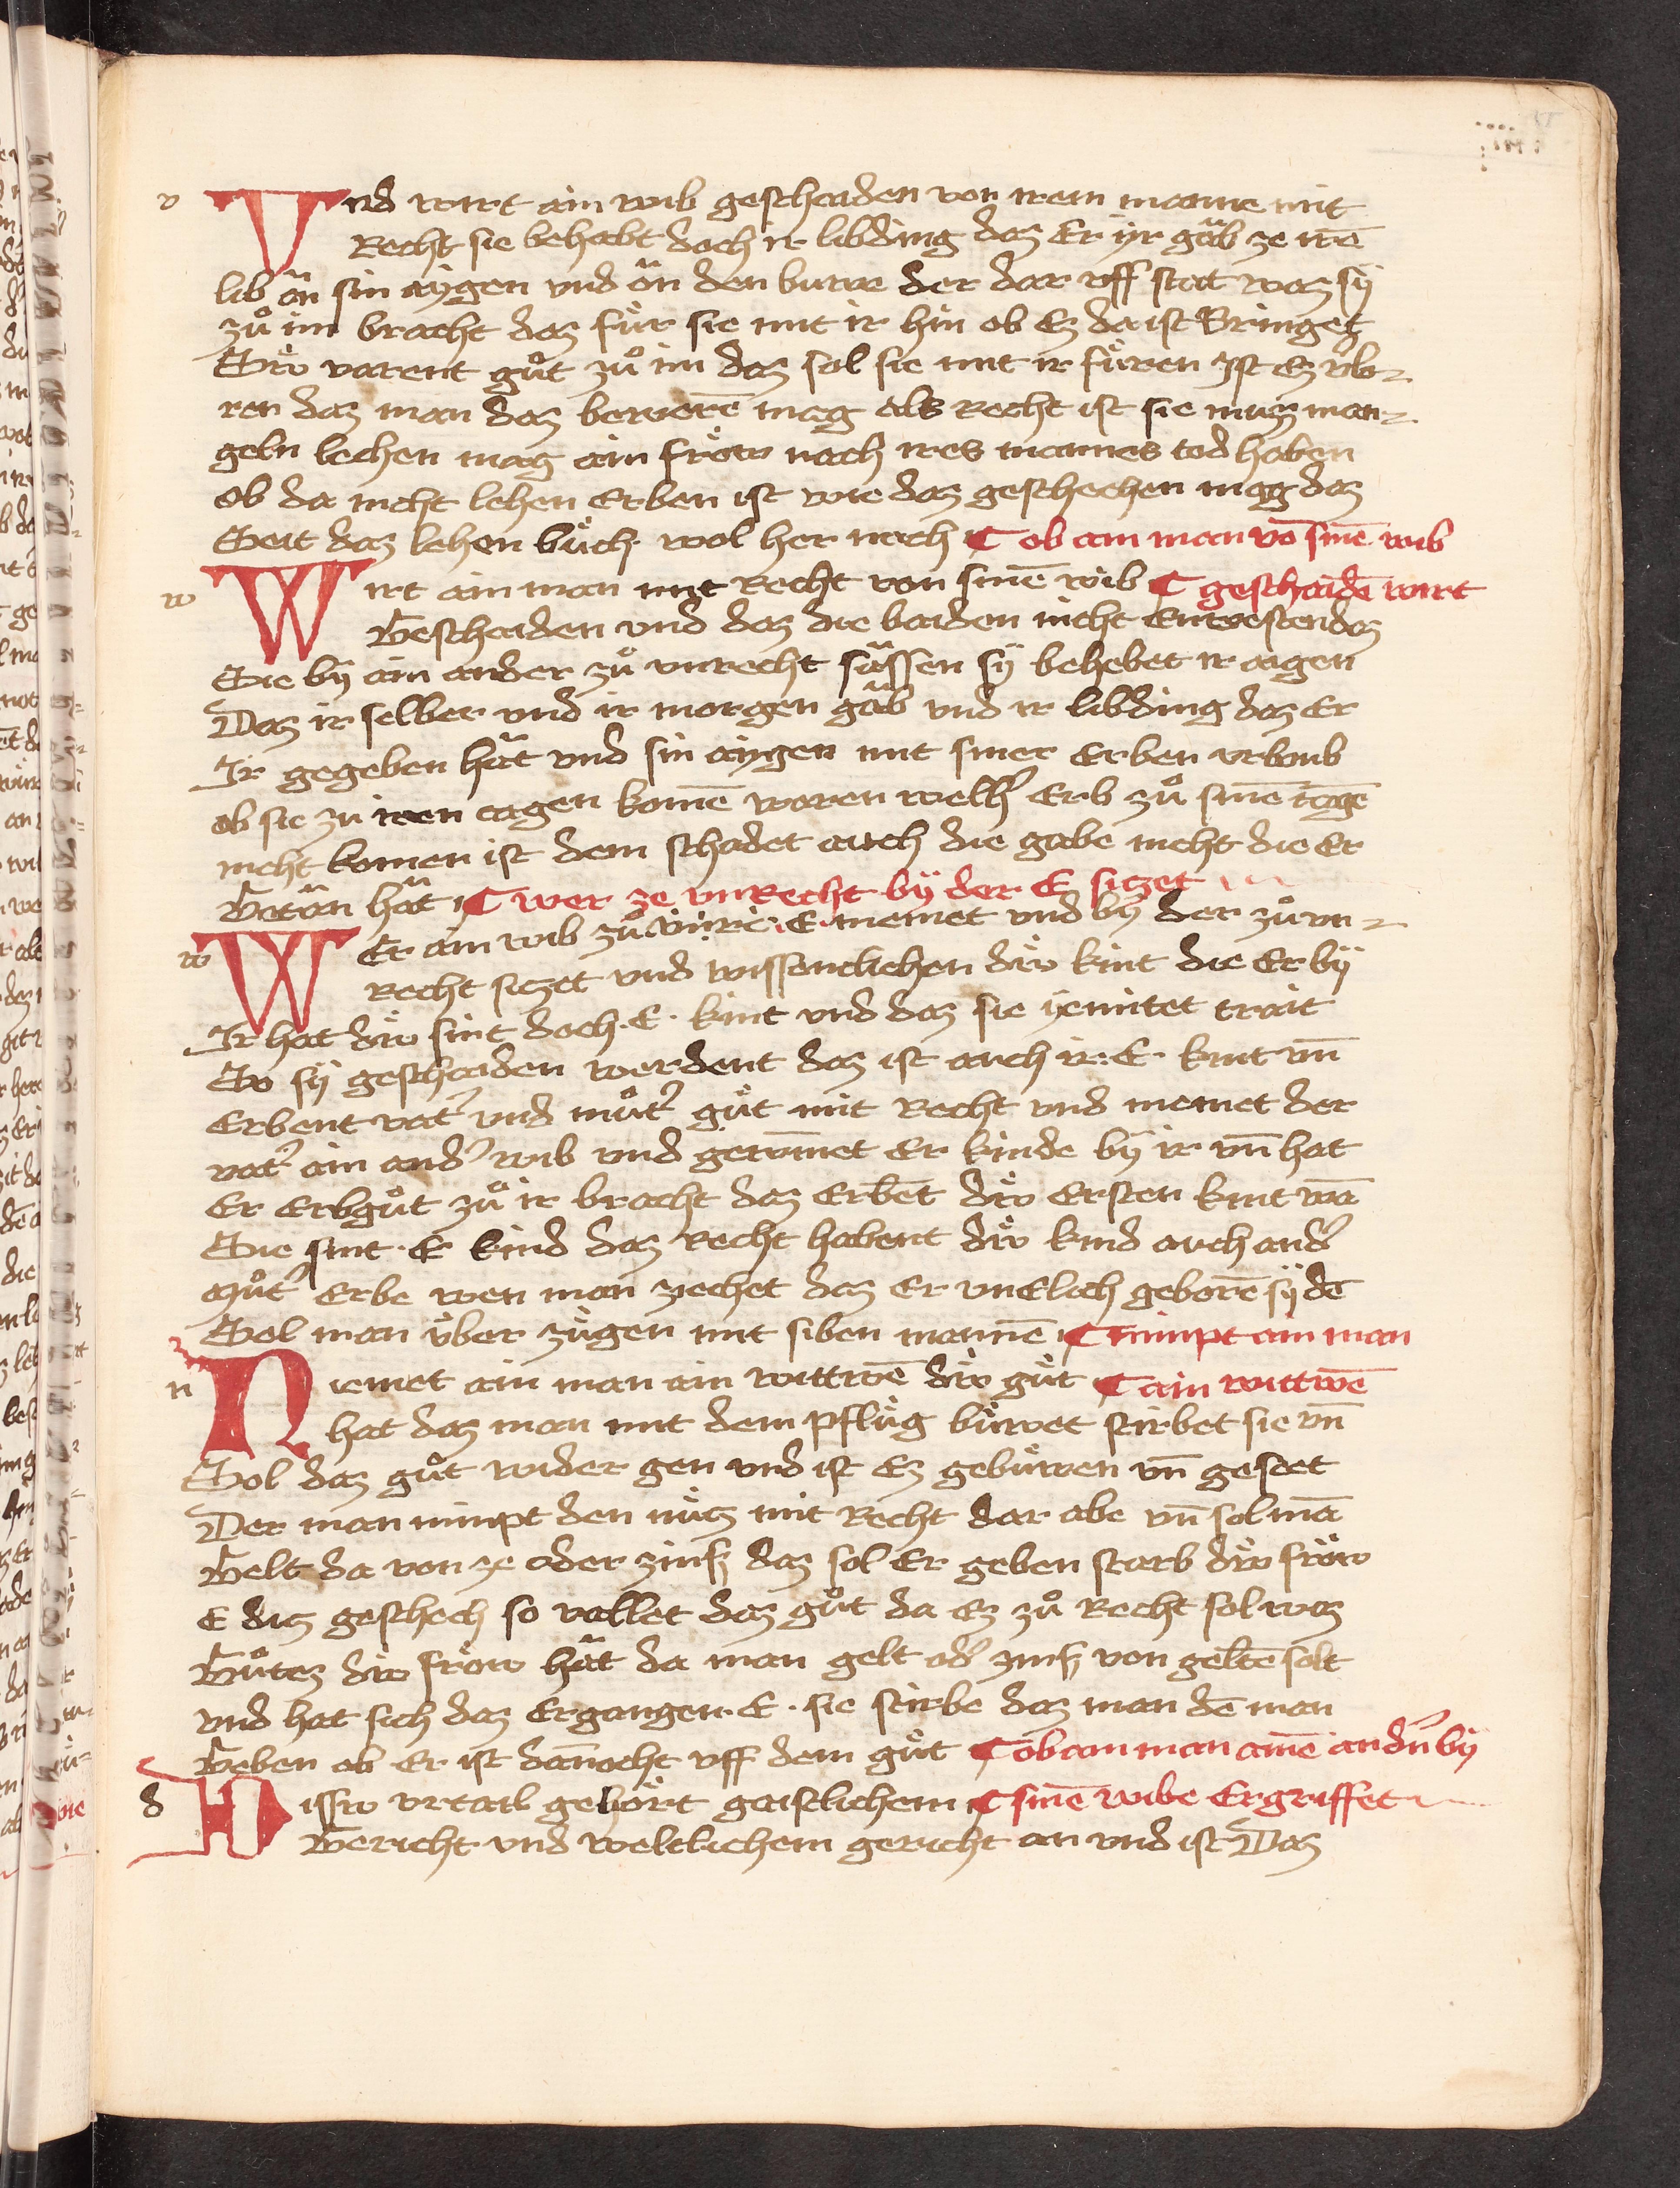 Vnd wirt ain wib geschaiden von irem manne mit
Recht sie behabt doch ir libding daz Er yr gäb ze irē
lib ān sin aygen vnd ān den buwe der dar vff stat waz sÿ
zů im bracht daz für sie mit ir hin ob Ez da ist Bringet
Siv varent gůt zů im daz sol sie mit ir fůren Ist Ez vˢlo-
ren daz man daz bewerē mag als Recht ist sie muz man-
geln lechen mag ain fröw nach ires mannes tod haben
ob da nicht lehen Erben ist wie daz geschechen mag daz
Seit daz lehen bůch wol her nach ¶ ob ain man vō sinē wib
Wirt ain man mit Recht von sinē wib ¶ geschaidē wirt
Geschaiden vnd daz die baiden nicht Enwesten daz
Sie bÿ ain ander zů vnrecht sässen sÿ behebet ir aigen
Daz ir selber vnd ir morgen gāb vnd ir libding daz Er
Ir gegeben hāt vnd sin aygen mit siner Erben vrlaub
ob sie zu iren tagen komē waren welhˢ Erb zů sinē tagē
nicht komen ist dem schadet auch die gabe nicht die Er
Getān hāt ¶ wer ze vnRecht bÿ der E sitzet
WEr ain wib zů vnre E niemet vnd bÿ der zů vn-
Recht sitzet vnd wissencklichen div kint die Er bÿ
Ir hat div sint doch · E · kint vnd daz sie yemitet trait
So sÿ geschaiden werdent daz ist auch ir · E · kint vn̄
Erbent vatˢ vnd můtˢ gůt mit Recht vnd niemet der
vatˢ ain andˢ wib vnd gewinnet Er kinde bÿ ir vn̄ hat
Er Erbgůt zů ir bracht daz Erbēt div Ersten kint wā
Sie sint · E kind daz Recht habent div kind auch andˢ
Můtˢ Erbe wen man ziechet daz Er vnElich geborē sÿ dē
Sol man über zügen mit siben mannē ¶ nimpt ain man
Niemet ain man ain wittwē div gůt ¶ ain wittwē
hat daz man mit dem pflůg buwet stirbet sie vn̄
Sol daz gůt wider gen vnd ist Ez gebuwen vn̄ geseet
Der man nimpt den nutz mit Recht dar abe vn̄ sol mā
Gelt da von ze oder zinß daz sol Er geben starb div fröw
E diz geschech so vallet daz gůt da Ez zů Recht sol waz
Gůtez div fröw hāt da man gelt odˢ zinß von geltē solt
vnd hat sich daz Ergangen · E · sie stirbe daz man dē man
Geben ob Er ist dannocht vff dem gůt ¶ ob ain man ainē andˢn bÿ
Dissiv vrtail gehört gaistlichem ¶ sinē wibe Ergriffet
Gericht vnd weltlichem gericht an vnd ist Daz